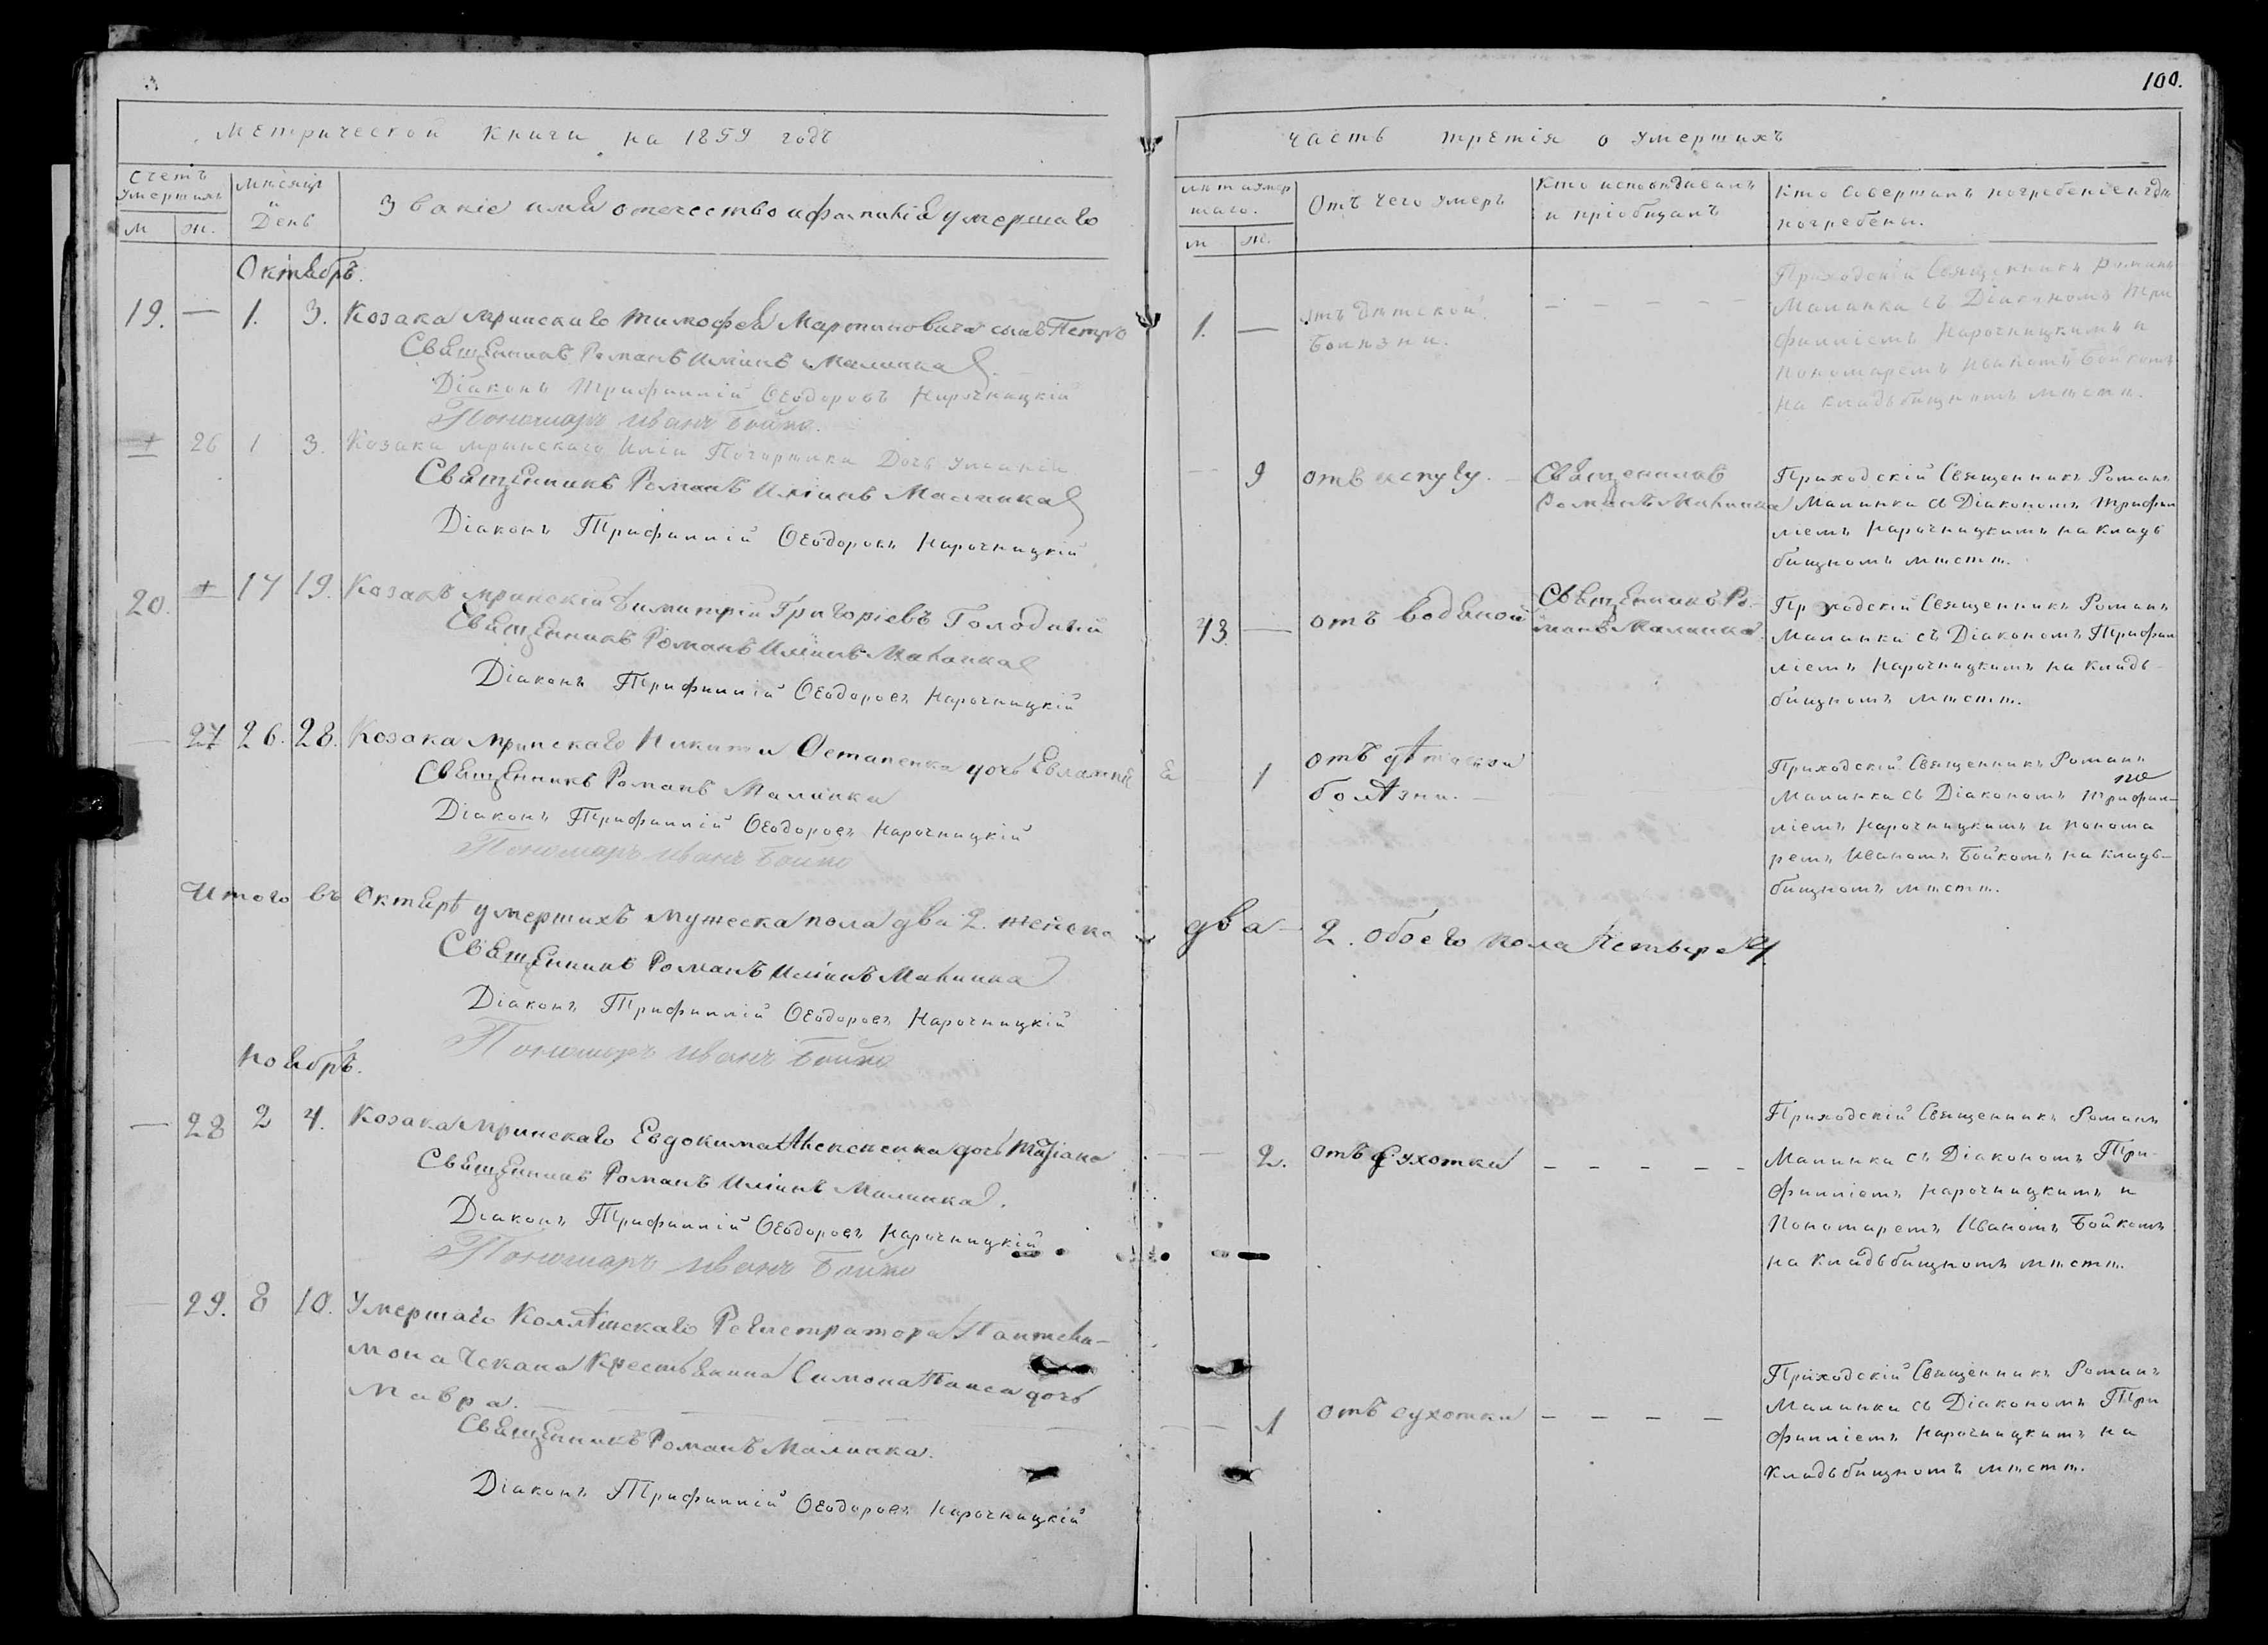 100.
Метрической книги на 1859 годъ
Счетъ умершихъ
м ж.
Мѣсяцъ и День
Званіе имя отечество и фамилія умершаго
Октябрь.
19. — 1. 3. Козака мринскаго Тимофея Мартиновича сынъ Петро
Священникъ Романъ Иліинъ Малинка
Діаконъ Трифиллій Ѳеодоровъ Нарочницкій
Пономарь Иванъ Бойко.
26 1 3. Козака мрынскаго Иліи Дочь
Священникъ Романъ Иліинъ Малинка
Діаконъ Трифиллій Ѳеодоровъ Нарочницкій
20. 17 19. Козакъ мринскій Димитрій Григоріевъ Голодный
Священникъ Романъ Иліинъ Малинка
Діаконъ Трифиллій Ѳеодоровъ Нарочницкій
— 27 26. 28. Козака мринскаго Никиты Остапенка дочь Евлампія
Священникъ Романъ Малинка
Діаконъ Трифиллій Ѳеодоровъ Нарочницкій
Пономарь Иванъ Бойко
Итого въ Октябрѣ умершихъ мужеска пола два 2. женска
Священникъ Романъ Иліинъ Малинка
Діаконъ Трифиллій Ѳеодоровъ Нарочницкій
Пономарь Иванъ Бойко
Ноябрь.
— 28 2 4. Козака мринскаго Евдокима дочь Татіана
Священникъ Романъ Иліинъ Малинка.
Діаконъ Трифиллій Ѳеодоровъ Нарочницкій
Пономарь Иванъ Бойко
— 29. 8 10. Умершаго Коллѣжскаго Регистратора Пантели-
мона Чекана Крестьянина Симона дочь
Мавра.
Священникъ Романъ Малинка.
Діаконъ Трифиллій Ѳеодоровъ Нарочницкій
часть третія о умершихъ
лѣта умер
шаго.
м ж.
Отъ чего умеръ
Кто исповѣдывалъ
и пріобщалъ
Кто совершалъ погребеніе и гдѣ
погребены.
1. — отъ дѣтской
болѣзни.
— — — — —
Приходскій Священникъ Романъ
Малинка съ Діакономъ Три
филліемъ Нарочницкимъ и
Пономаремъ Иваномъ Бойкомъ
на кладьбищномъ мѣстѣ.
— 9 отъ испугу. Священникъ
Романъ Малинка
Приходскій Священникъ Романъ
Малинка съ Діакономъ Трифил
ліемъ Нарочницкимъ на кладь
бищномъ мѣстѣ.
73. — отъ водяной Священникъ Ро-
манъ Малинка.
Приходскій Священникъ Романъ
Малинка съ Діакономъ Трифил
ліемъ Нарочницкимъ на кладь-
бищномъ мѣстѣ.
1 отъ дѣтской
болѣзни.
Приходскій Священникъ Романъ
Малинка съ Діакономъ Трифил-
ліемъ Нарочницкимъ и понома
ремъ Иваномъ Бойкомъ на кладь-
бищномъ мѣстѣ.
два 2. обоего пола четыре 4.
— 2. отъ сухотки — — — — —
Приходскій Священникъ Романъ
Малинка съ Діакономъ Три-
филліемъ Нарочницкимъ и
Пономаремъ Иваномъ Бойкомъ
на кладьбищномъ мѣстѣ.
— 1 отъ сухотки — — — —
Приходскій Священникъ Романъ
Малинка съ Діакономъ Три
филліемъ Нарочницкимъ на
кладьбищномъ мѣстѣ.